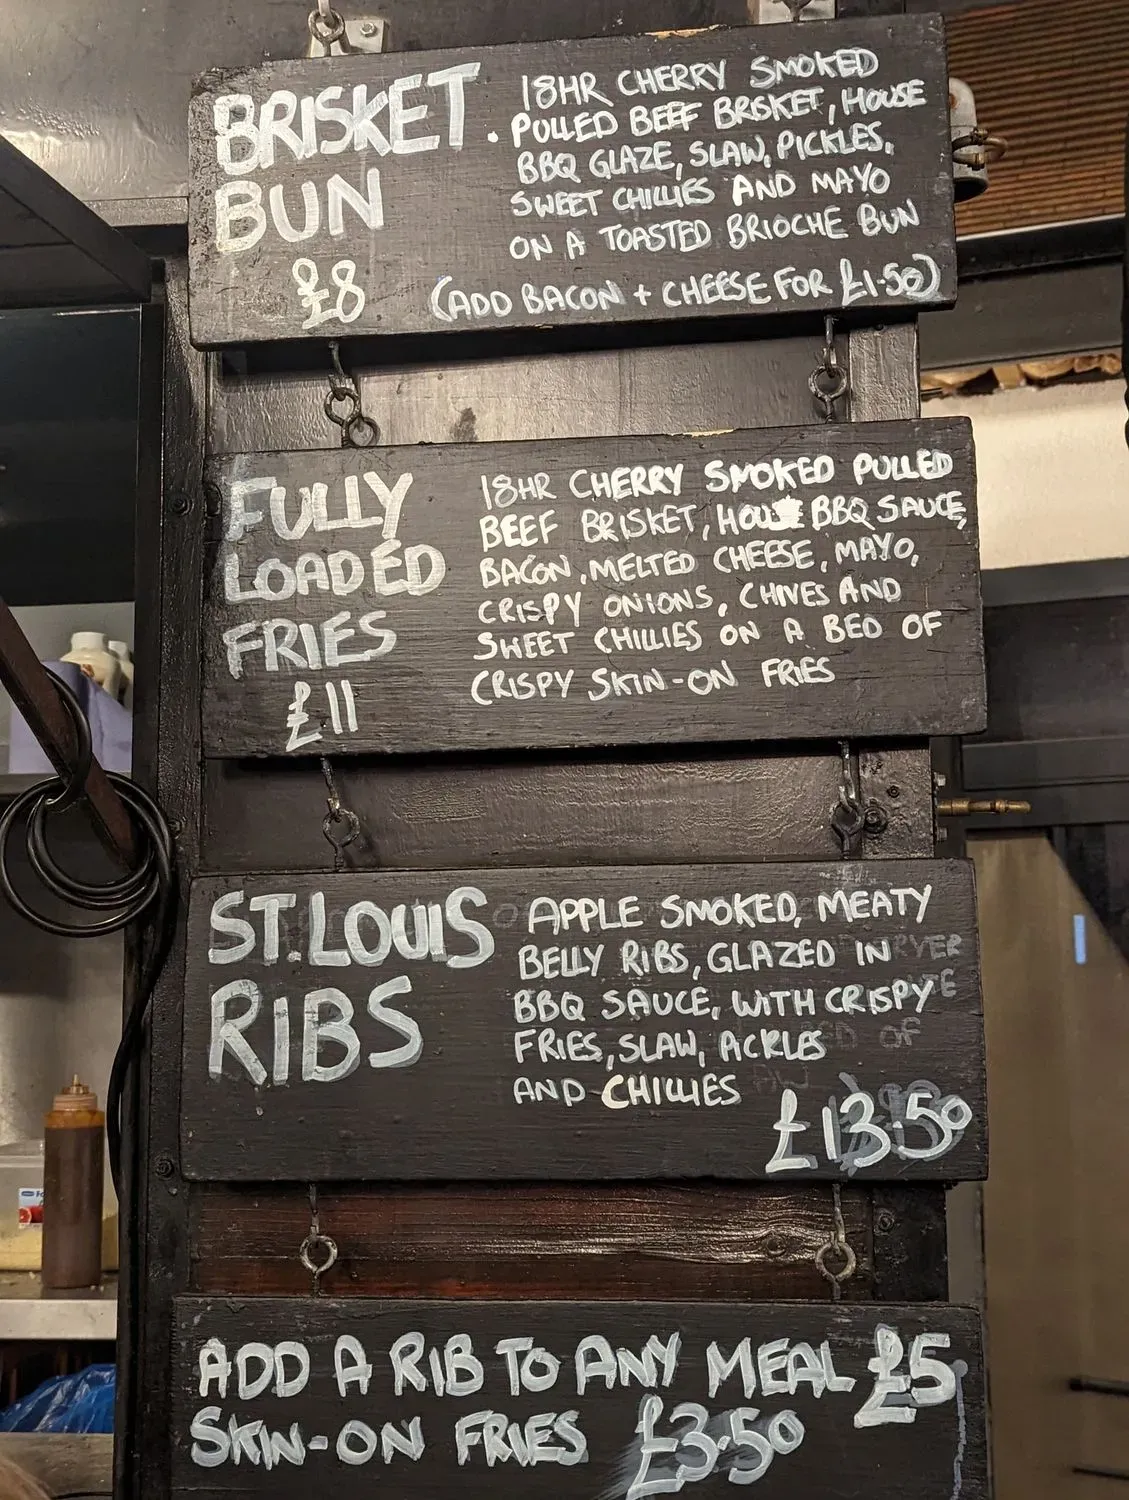 BRISKET
BUN
£8
. 18HR CHERRY SMOKED
PULLED BEEF BRISKET, HOUSE
BBQ GLAZE, SLAW, PICKLES,
SWEET CHILLIES AND MAYO
ON A TOASTED BRIOCHE BUN
(ADD BACON + CHEESE FOR £1.50)
FULLY
LOADED
FRIES
£11
18HR CHERRY SMOKED PULLED
BEEF BRISKET, HOUSE BBQ SAUCE,
BACON, MELTED CHEESE, MAYO,
CRISPY ONIONS, CHIVES AND
SWEET CHILLIES ON A BED OF
CRISPY SKIN-ON FRIES
ST. LOUIS
RIBS
APPLE SMOKED, MEATY
BELLY RIBS, GLAZED IN
BBQ SAUCE, WITH CRISPY
FRIES, SLAW, PICKLES
AND CHILLIES
£13.50
ADD A RIB TO ANY MEAL £5
SKIN-ON FRIES £3.50